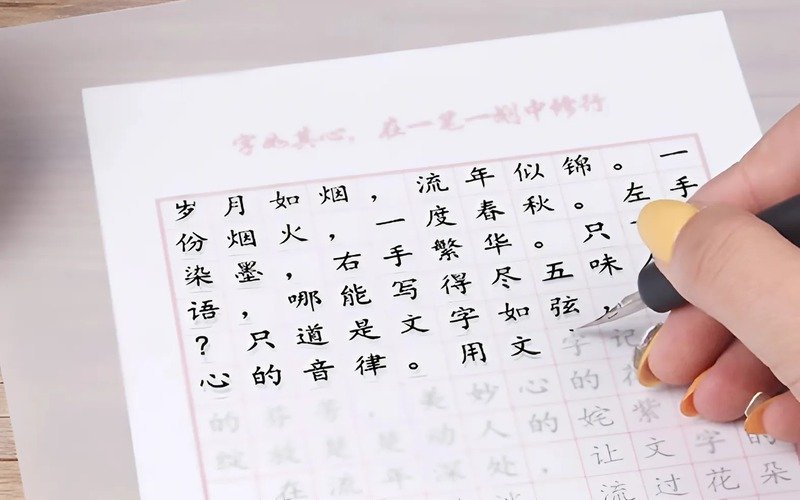 字如其心,在一笔一划中修行
岁月如烟,流年似锦。一
份烟火,一度春秋。左手
染墨,右手繁华。只
语,哪能写得尽五味
?只道是文字如弦,
心的音律。用文字记
的芬芳,美妙心的花
绽放楚楚动人的姹紫
在流年深处,让文字的
流过花朵